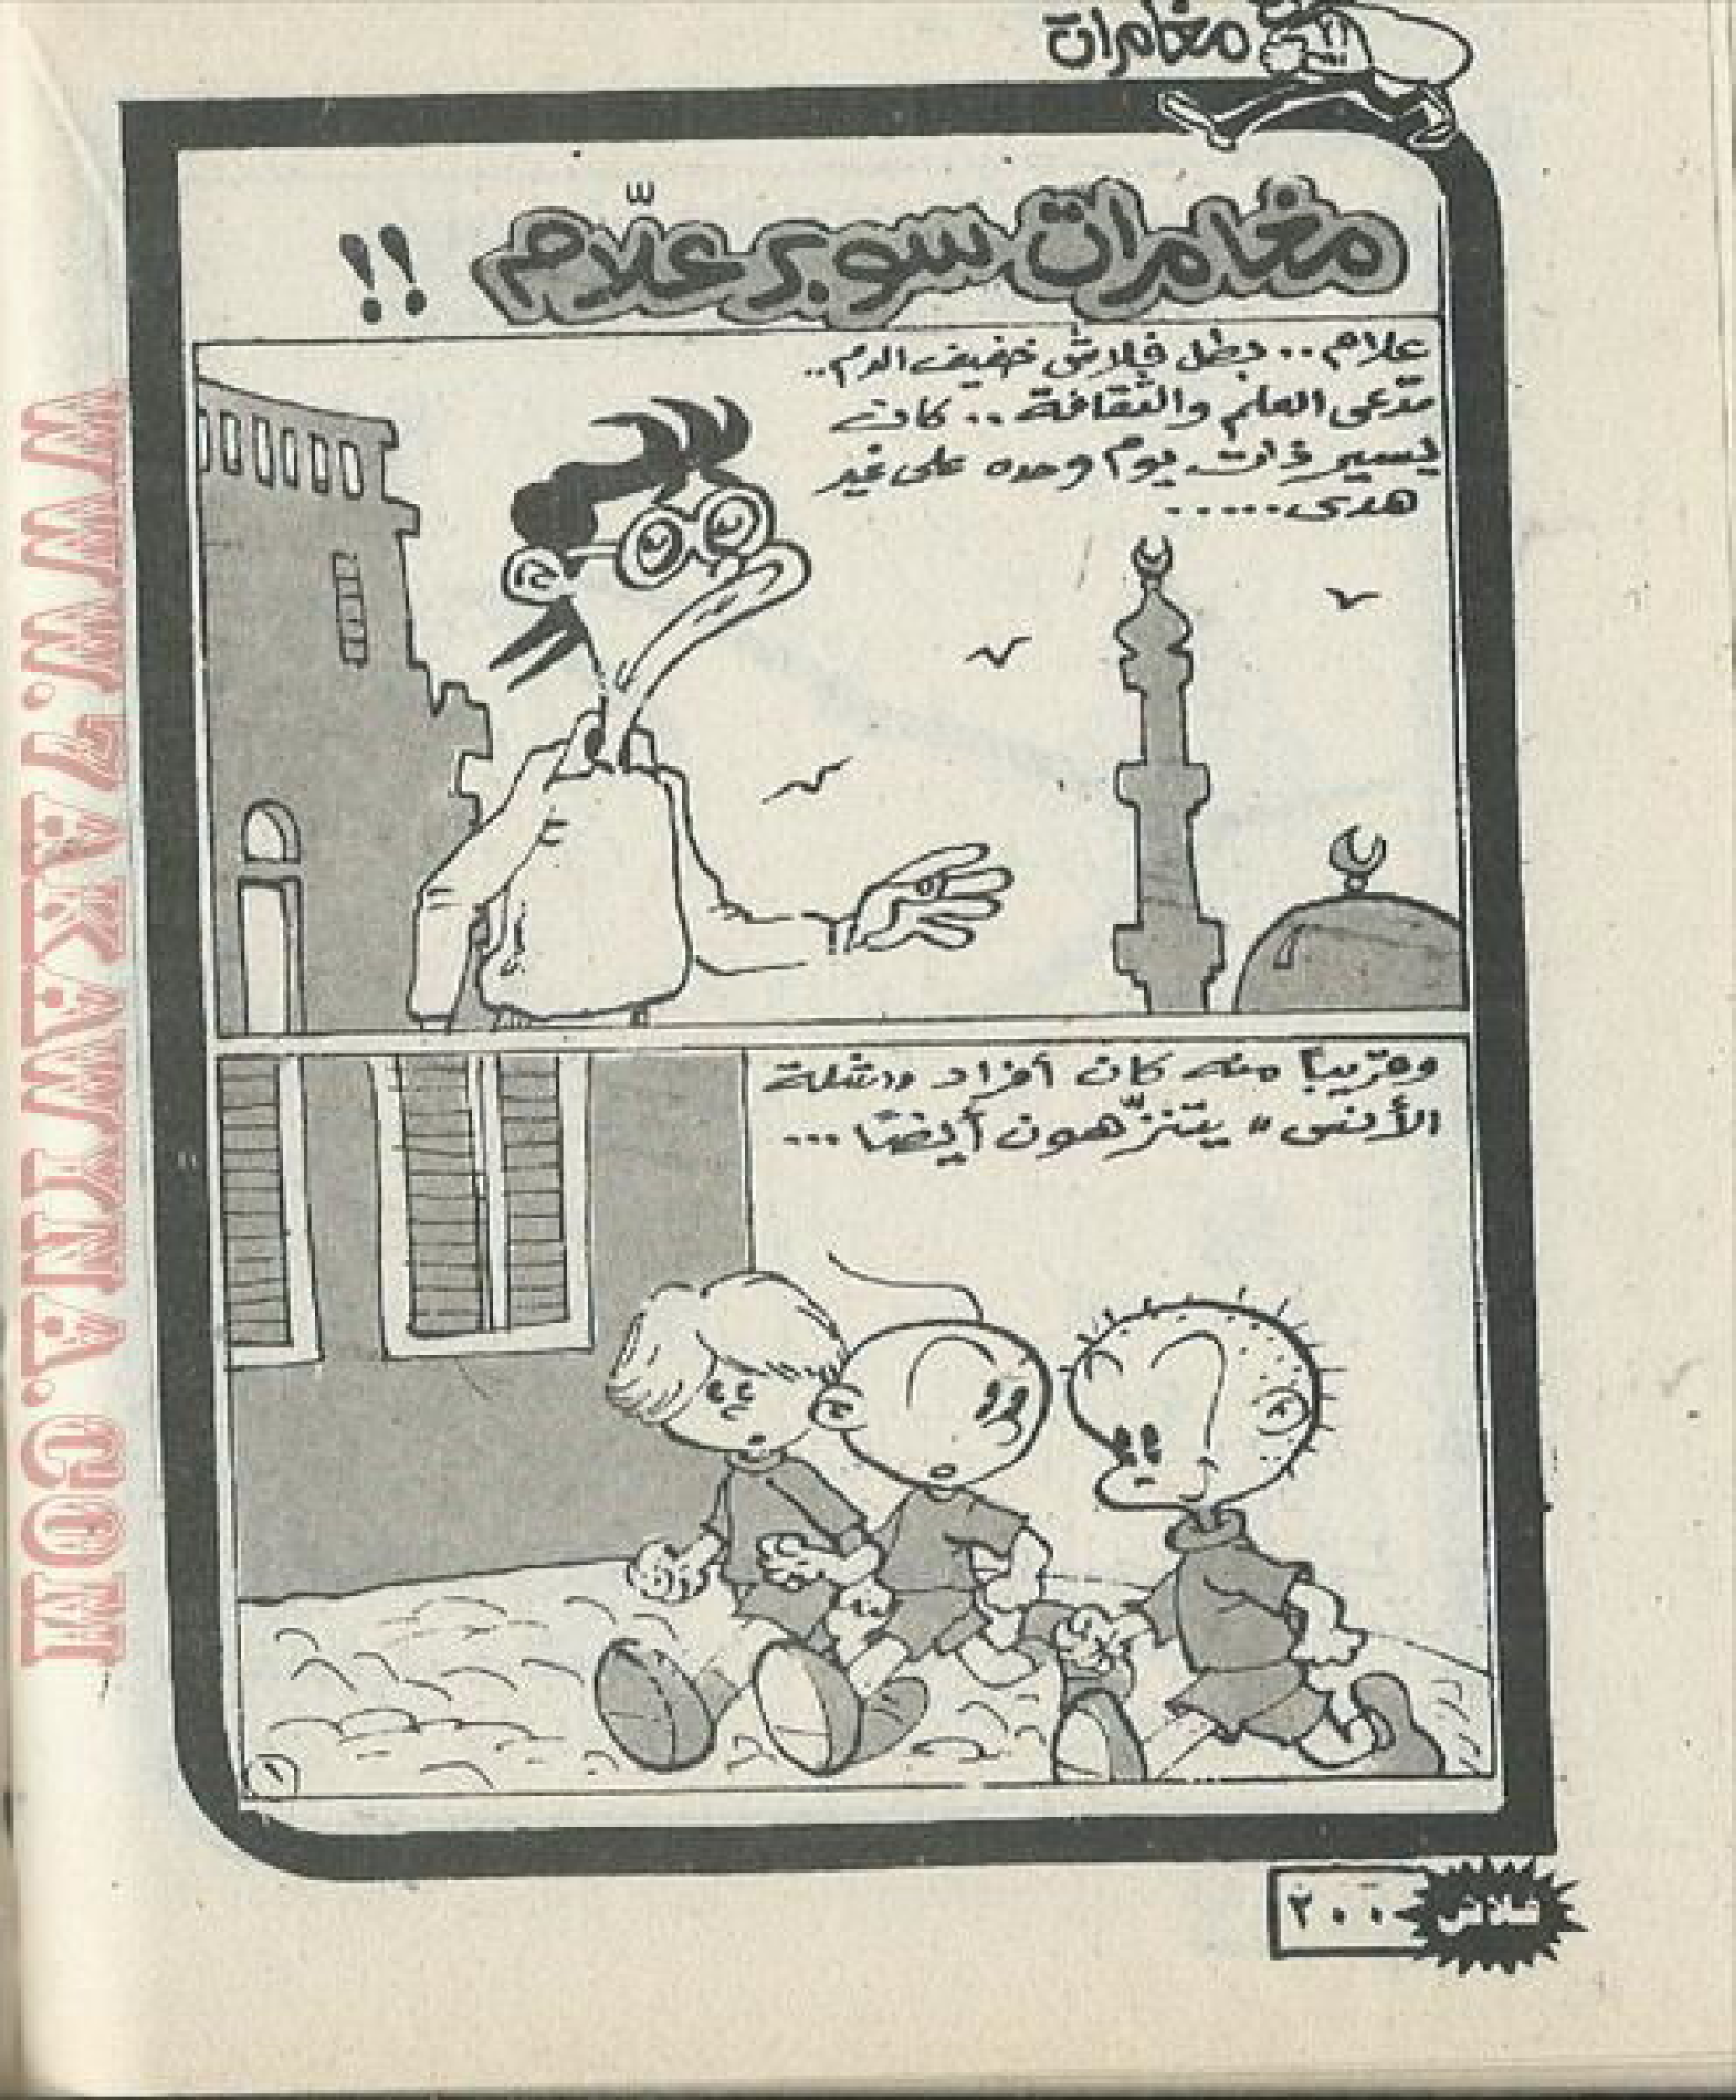 مغامرات
مغامرات سوبر علّام !!
علام .. بطل فلاش خفيف الدم ..
مدعى العلم والثقافة .. كان
يسير ذات يوم وحده على غير
هدى .....
وقريباً منه كان أفراد "شلة
الأنس" يتنزّهون أيضًا ...
١
فلاش
٢٠٠
WWW.ARABCOMICS